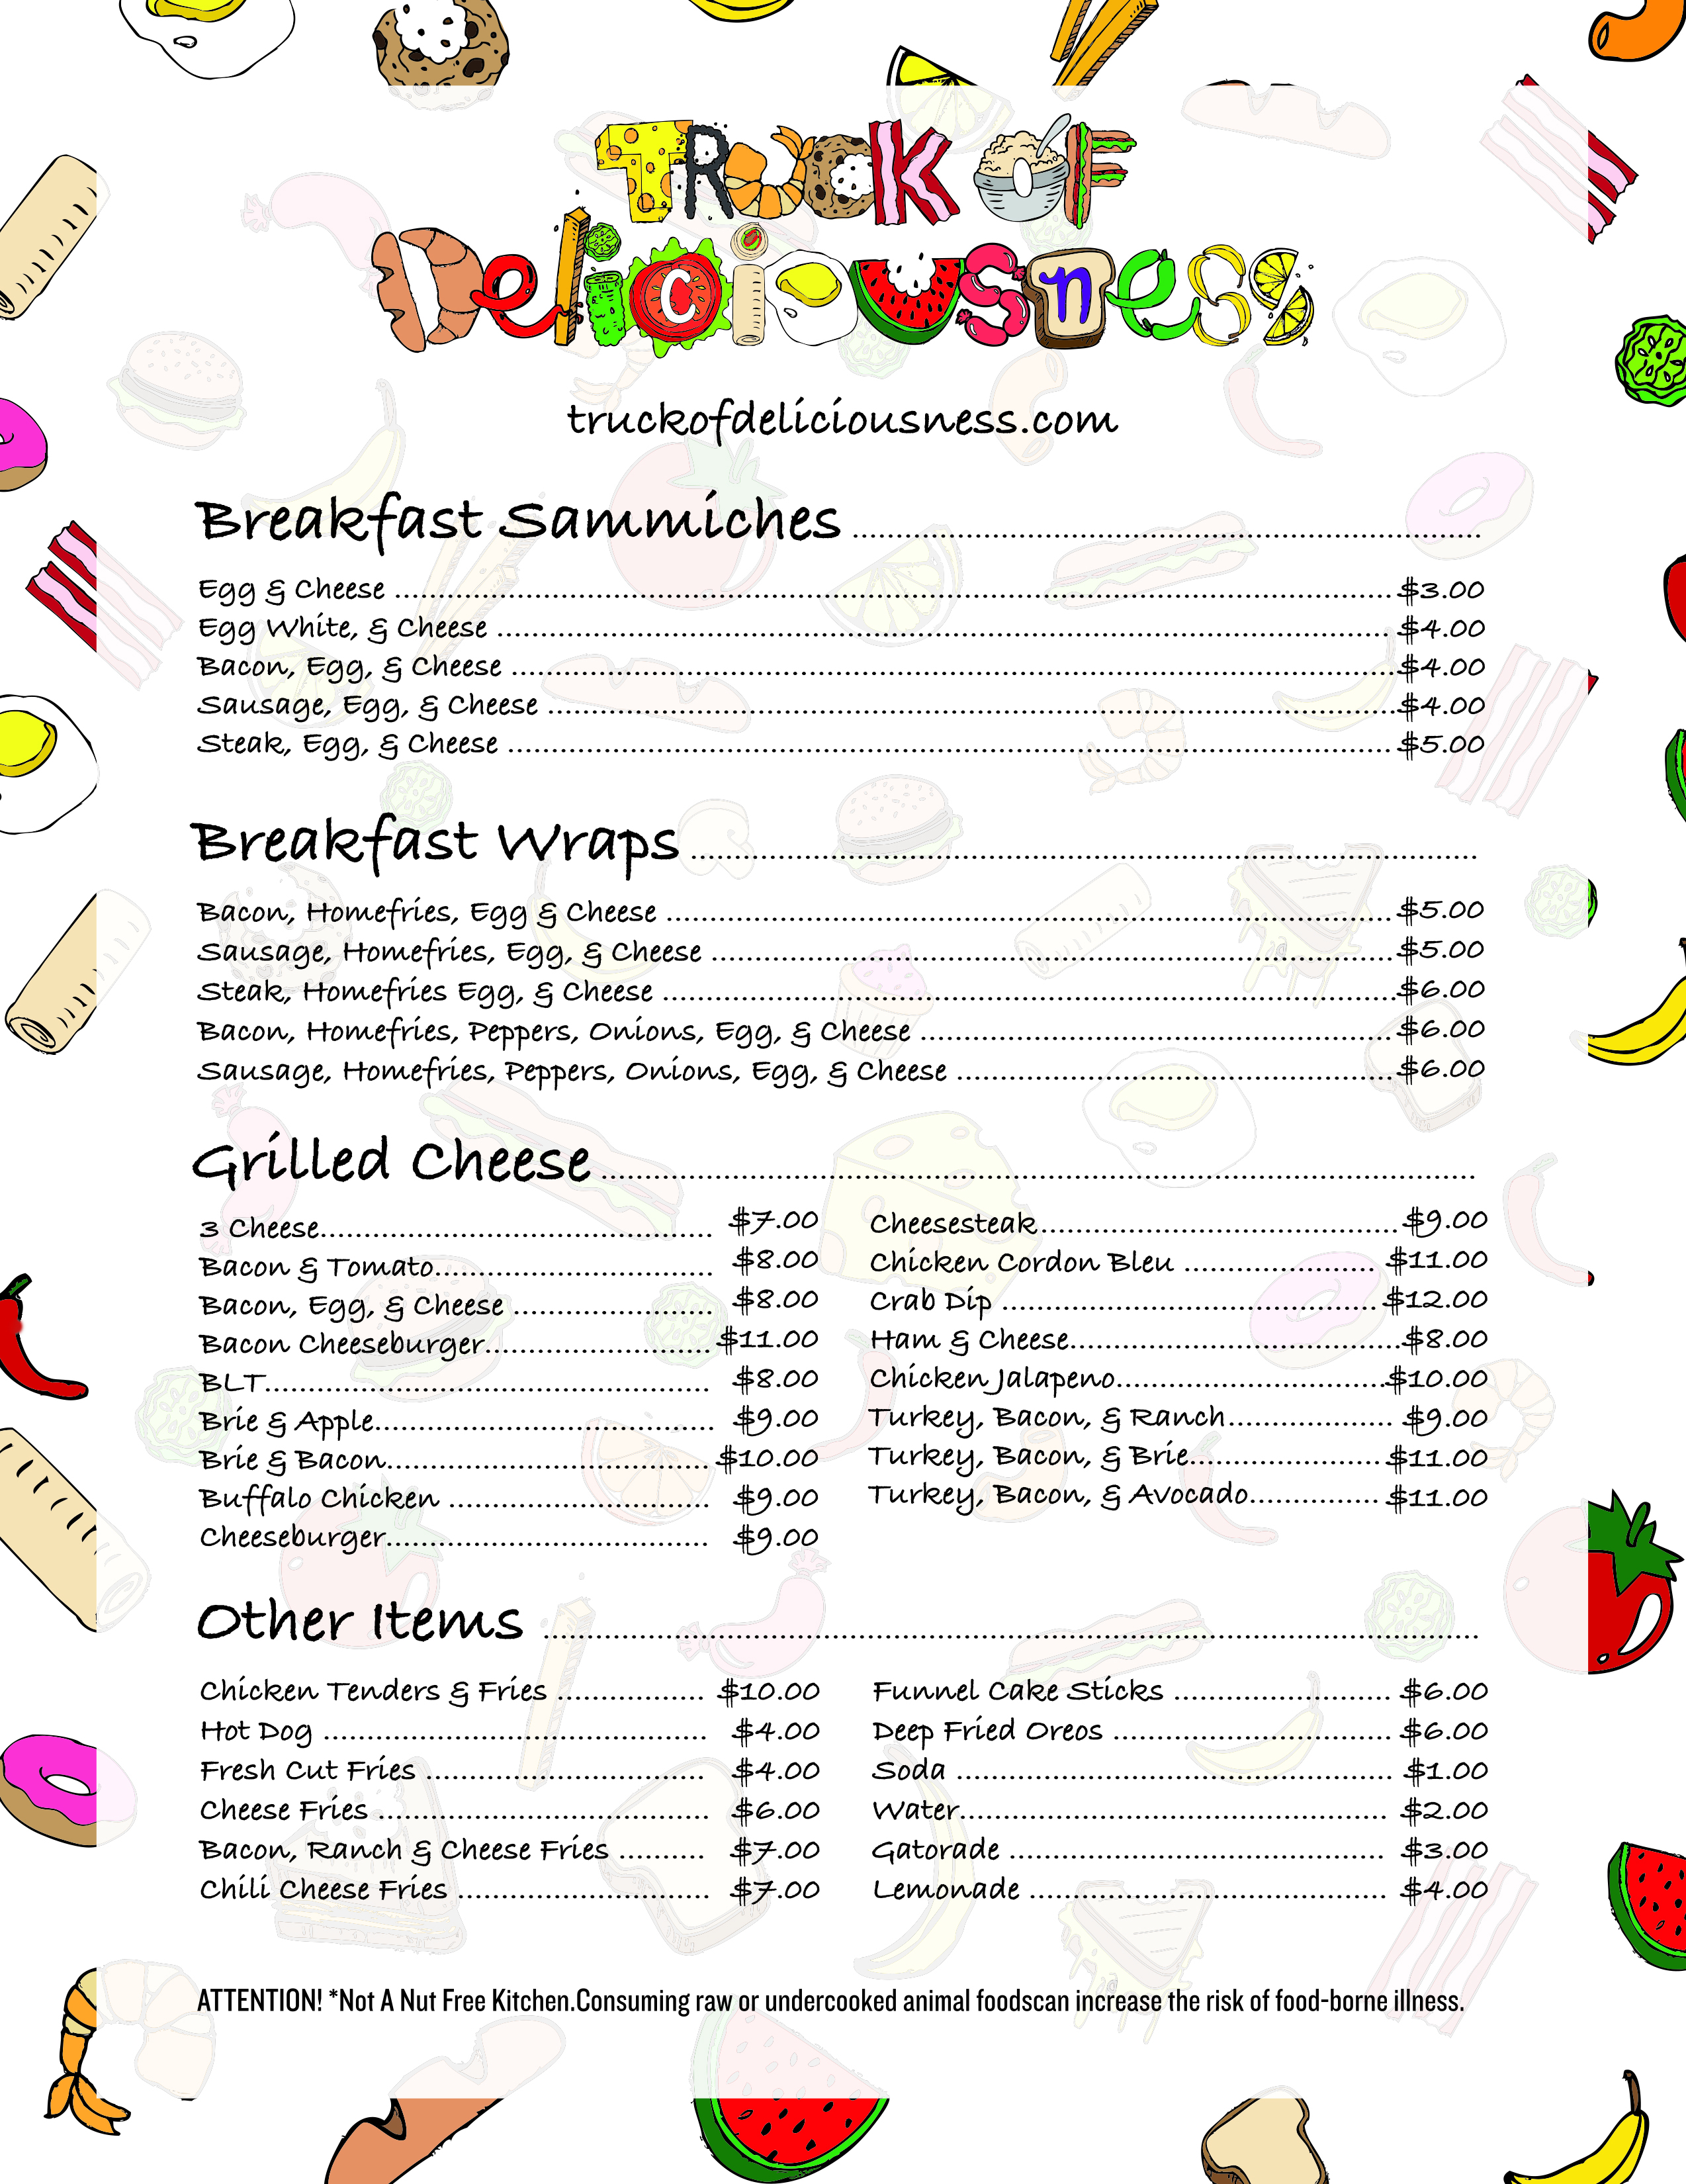 TRUCK OF
Deliciousness
truckofdeliciousness.com
Breakfast Sammiches ........................................
Egg & Cheese ........................................ $3.00
Egg White, & Cheese ........................................ $4.00
Bacon, Egg, & Cheese ........................................ $4.00
Sausage, Egg, & Cheese ........................................ $4.00
Steak, Egg, & Cheese ........................................ $5.00
Breakfast Wraps ........................................
Bacon, Homefries, Egg & Cheese ........................................ $5.00
Sausage, Homefries, Egg, & Cheese ........................................ $5.00
Steak, Homefries Egg, & Cheese ........................................ $6.00
Bacon, Homefries, Peppers, Onions, Egg, & Cheese ........................................ $6.00
Sausage, Homefries, Peppers, Onions, Egg, & Cheese ........................................ $6.00
Grilled Cheese ........................................
3 Cheese........................................ $7.00
Bacon & Tomato........................................ $8.00
Bacon, Egg, & Cheese ........................ $8.00
Bacon Cheeseburger........................... $11.00
BLT........................................ $8.00
Brie & Apple........................................ $9.00
Brie & Bacon........................................ $10.00
Buffalo Chicken ................................ $9.00
Cheeseburger........................................ $9.00
Cheesesteak........................................ $9.00
Chicken Cordon Bleu ....................... $11.00
Crab Dip ........................................ $12.00
Ham & Cheese........................................ $8.00
Chicken Jalapeno................................ $10.00
Turkey, Bacon, & Ranch.................... $9.00
Turkey, Bacon, & Brie....................... $11.00
Turkey, Bacon, & Avocado................ $11.00
Other Items ........................................
Chicken Tenders & Fries .................. $10.00
Hot Dog ........................................ $4.00
Fresh Cut Fries .................................. $4.00
Cheese Fries ........................................ $6.00
Bacon, Ranch & Cheese Fries .......... $7.00
Chili Cheese Fries ............................... $7.00
Funnel Cake Sticks .......................... $6.00
Deep Fried Oreos .................................. $6.00
Soda ........................................ $1.00
Water........................................ $2.00
Gatorade ........................................ $3.00
Lemonade ........................................ $4.00
ATTENTION! *Not A Nut Free Kitchen.Consuming raw or undercooked animal foodscan increase the risk of food-borne illness.